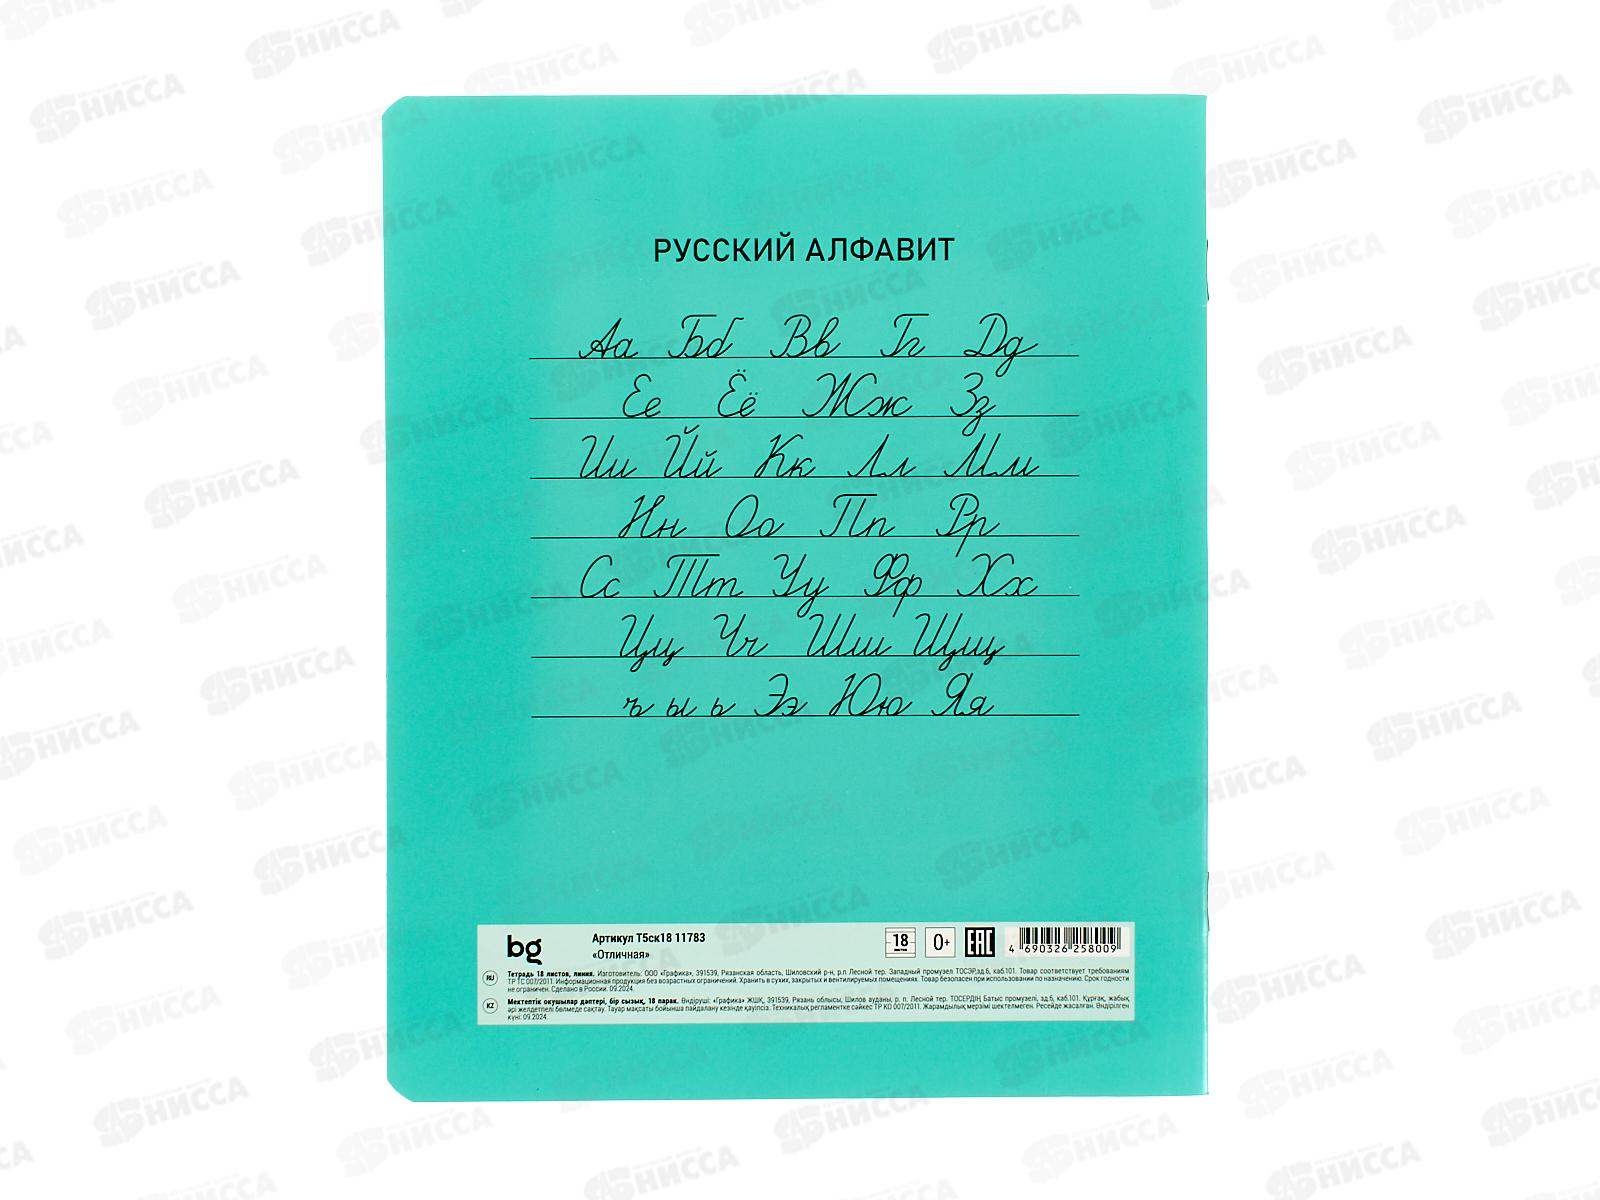 РУССКИЙ АЛФАВИТ
Аа Бб Вв Гг Дд
Ее Ёё Жж Зз
Ии Йй Кк Лл Мм
Нн Оо Пп Рр
Сс Тт Уу Фф Хх
Цц Чч Шш Щщ
ъ ы ь Ээ Юю Яя
bg
Артикул Т5ск18 11783
«Отличная»
18
листов
0+
EAC
4 690326 258009
RU
Тетрадь 18 листов, линия. Изготовитель: ООО «Графика», 391539, Рязанская область, Шиловский р-н, р.п Лесной тер. Западный промузел ТОСЭР,зд.6, каб.101. Товар соответствует требованиям
ТР ТС 007/2011. Информационная продукция без возрастных ограничений. Хранить в сухих, закрытых и вентилируемых помещениях. Товар безопасен при использовании по назначению. Срок годности
не ограничен. Сделано в России. 09.2024.
KZ
Мектептік оқушылар дәптері, бір сызық, 18 парақ. Өндіруші: «Графика» ЖШҚ, 391539, Рязань облысы, Шилов ауданы, р. п. Лесной тер. ТОСЕРДІҢ Батыс промузелі, зд.6, каб.101. Құрғақ, жабық
әрі желдетпелі бөлмеде сақтау. Тауар мақсаты бойынша пайдалану кезінде қауіпсіз. Техникалық регламентке сәйкес ТР КО 007/2011. Жарамдылық мерзімі шектелмеген. Ресейде жасалған. Өндірілген
күні: 09.2024.
НИССА